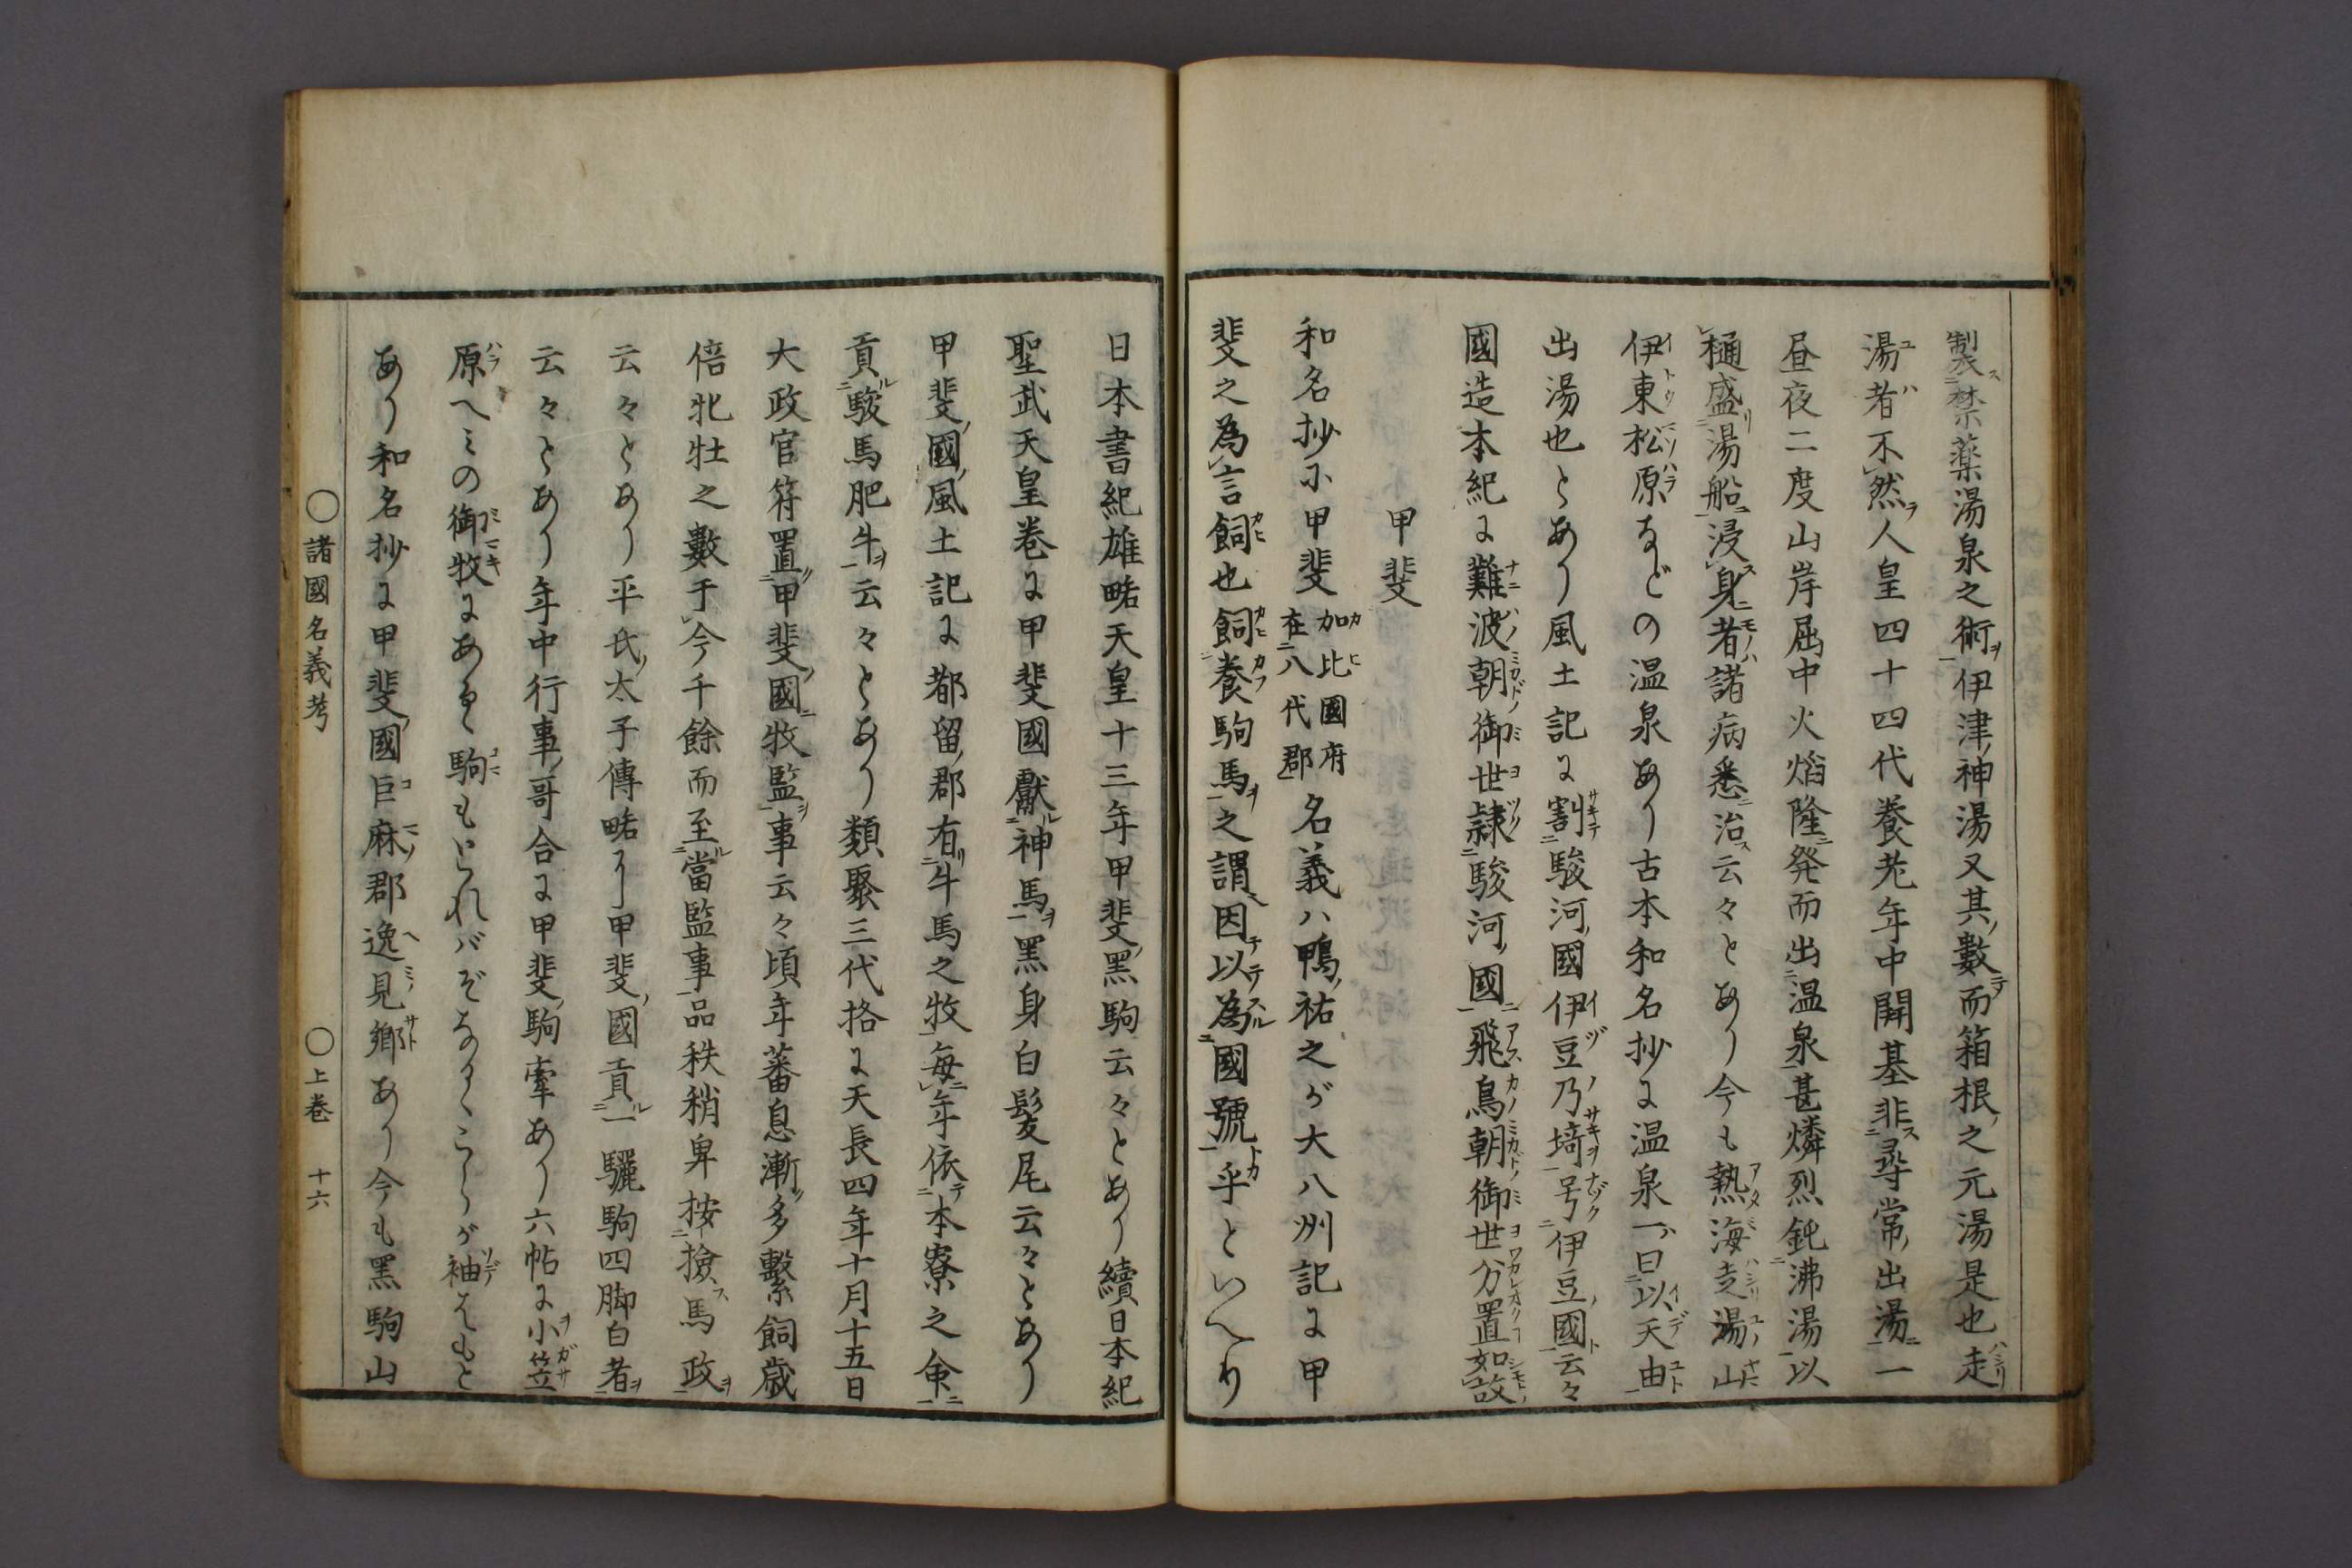 製禁薬湯泉之術伊津神湯又其數而箱根之元湯是也走
湯者不然人皇四十四代養老年中開基非尋常出湯一
昼夜二度山岸屈中火焰隆発而出温泉甚燐烈鈍沸湯以
樋盛湯船浸身者諸病悉治云々とあり今も熱海走湯山
伊東松原などの温泉あり古本和名抄に温泉一曰以天由
出湯也とあり風土記に割駿河國伊豆乃埼号伊豆國云々
國造本紀に難波朝御世隷駿河國飛鳥朝御世分置如故
甲斐
和名抄に甲斐加比國府在八代郡名義ハ鴨祐之が大八洲記に甲
斐之為言飼也飼養駒馬之謂因以為國號乎といへり
日本書紀雄略天皇十三年甲斐黒駒云々とあり續日本紀
聖武天皇巻に甲斐國獻神馬黒身白髪尾云々とあり
甲斐國風土記に都留郡有牛馬之牧毎年依本寮之命
貢駿馬肥牛云々とあり類聚三代格に天長四年十月十五日
大政官符置甲斐國牧監事云々頃年蕃息漸多繫飼歳
倍牝牡之數于今千餘而至當監事品秩稍卑按撿馬政
云々とあり平氏太子傳略に甲斐國貢一驪駒四脚白者
云々とあり年中行事哥合に甲斐駒牽あり六帖に小笠
原へみの御牧にあるゝ駒もとればぞなるゝこらが袖はもと
あり和名抄に甲斐國巨麻郡逸見郷あり今も黒駒山
○諸國名義考 ○上巻 十六